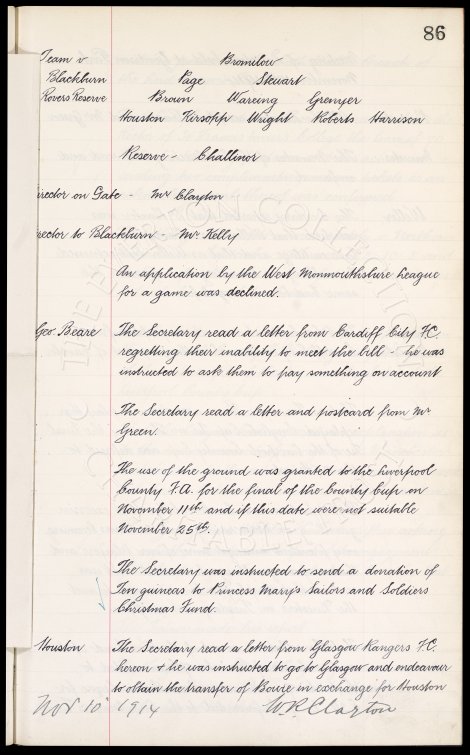 86
Team v Bromilow
Blackburn Page Stewart
Rovers Reserve Brown Wareing Grenyer
Houston Kirsopp Wright Roberts Harrison
Reserve - Challinor
irector on Gate - Mr Clayton
irector to Blackburn - Mr Kelly
An application by the West Monmouthshire League
for a game was declined.
Geo. Beare The Secretary read a letter from Cardiff City F.C.
regretting their inability to meet the bill - he was
instructed to ask them to pay something on account
The Secretary read a letter and postcard from Mr
Green.
The use of the ground was granted to the Liverpool
County F.A. for the final of the County Cup on
November 11th and if this date were not suitable
November 25th.
The Secretary was instructed to send a donation of
Ten guineas to Princess Mary's Sailors and Soldiers
Christmas Fund.
Houston The Secretary read a letter from Glasgow Rangers F.C.
hereon & he was instructed to go to Glasgow and endeavour
to obtain the transfer of Bowie in exchange for Houston
Nov 10 1914 W R Clayton